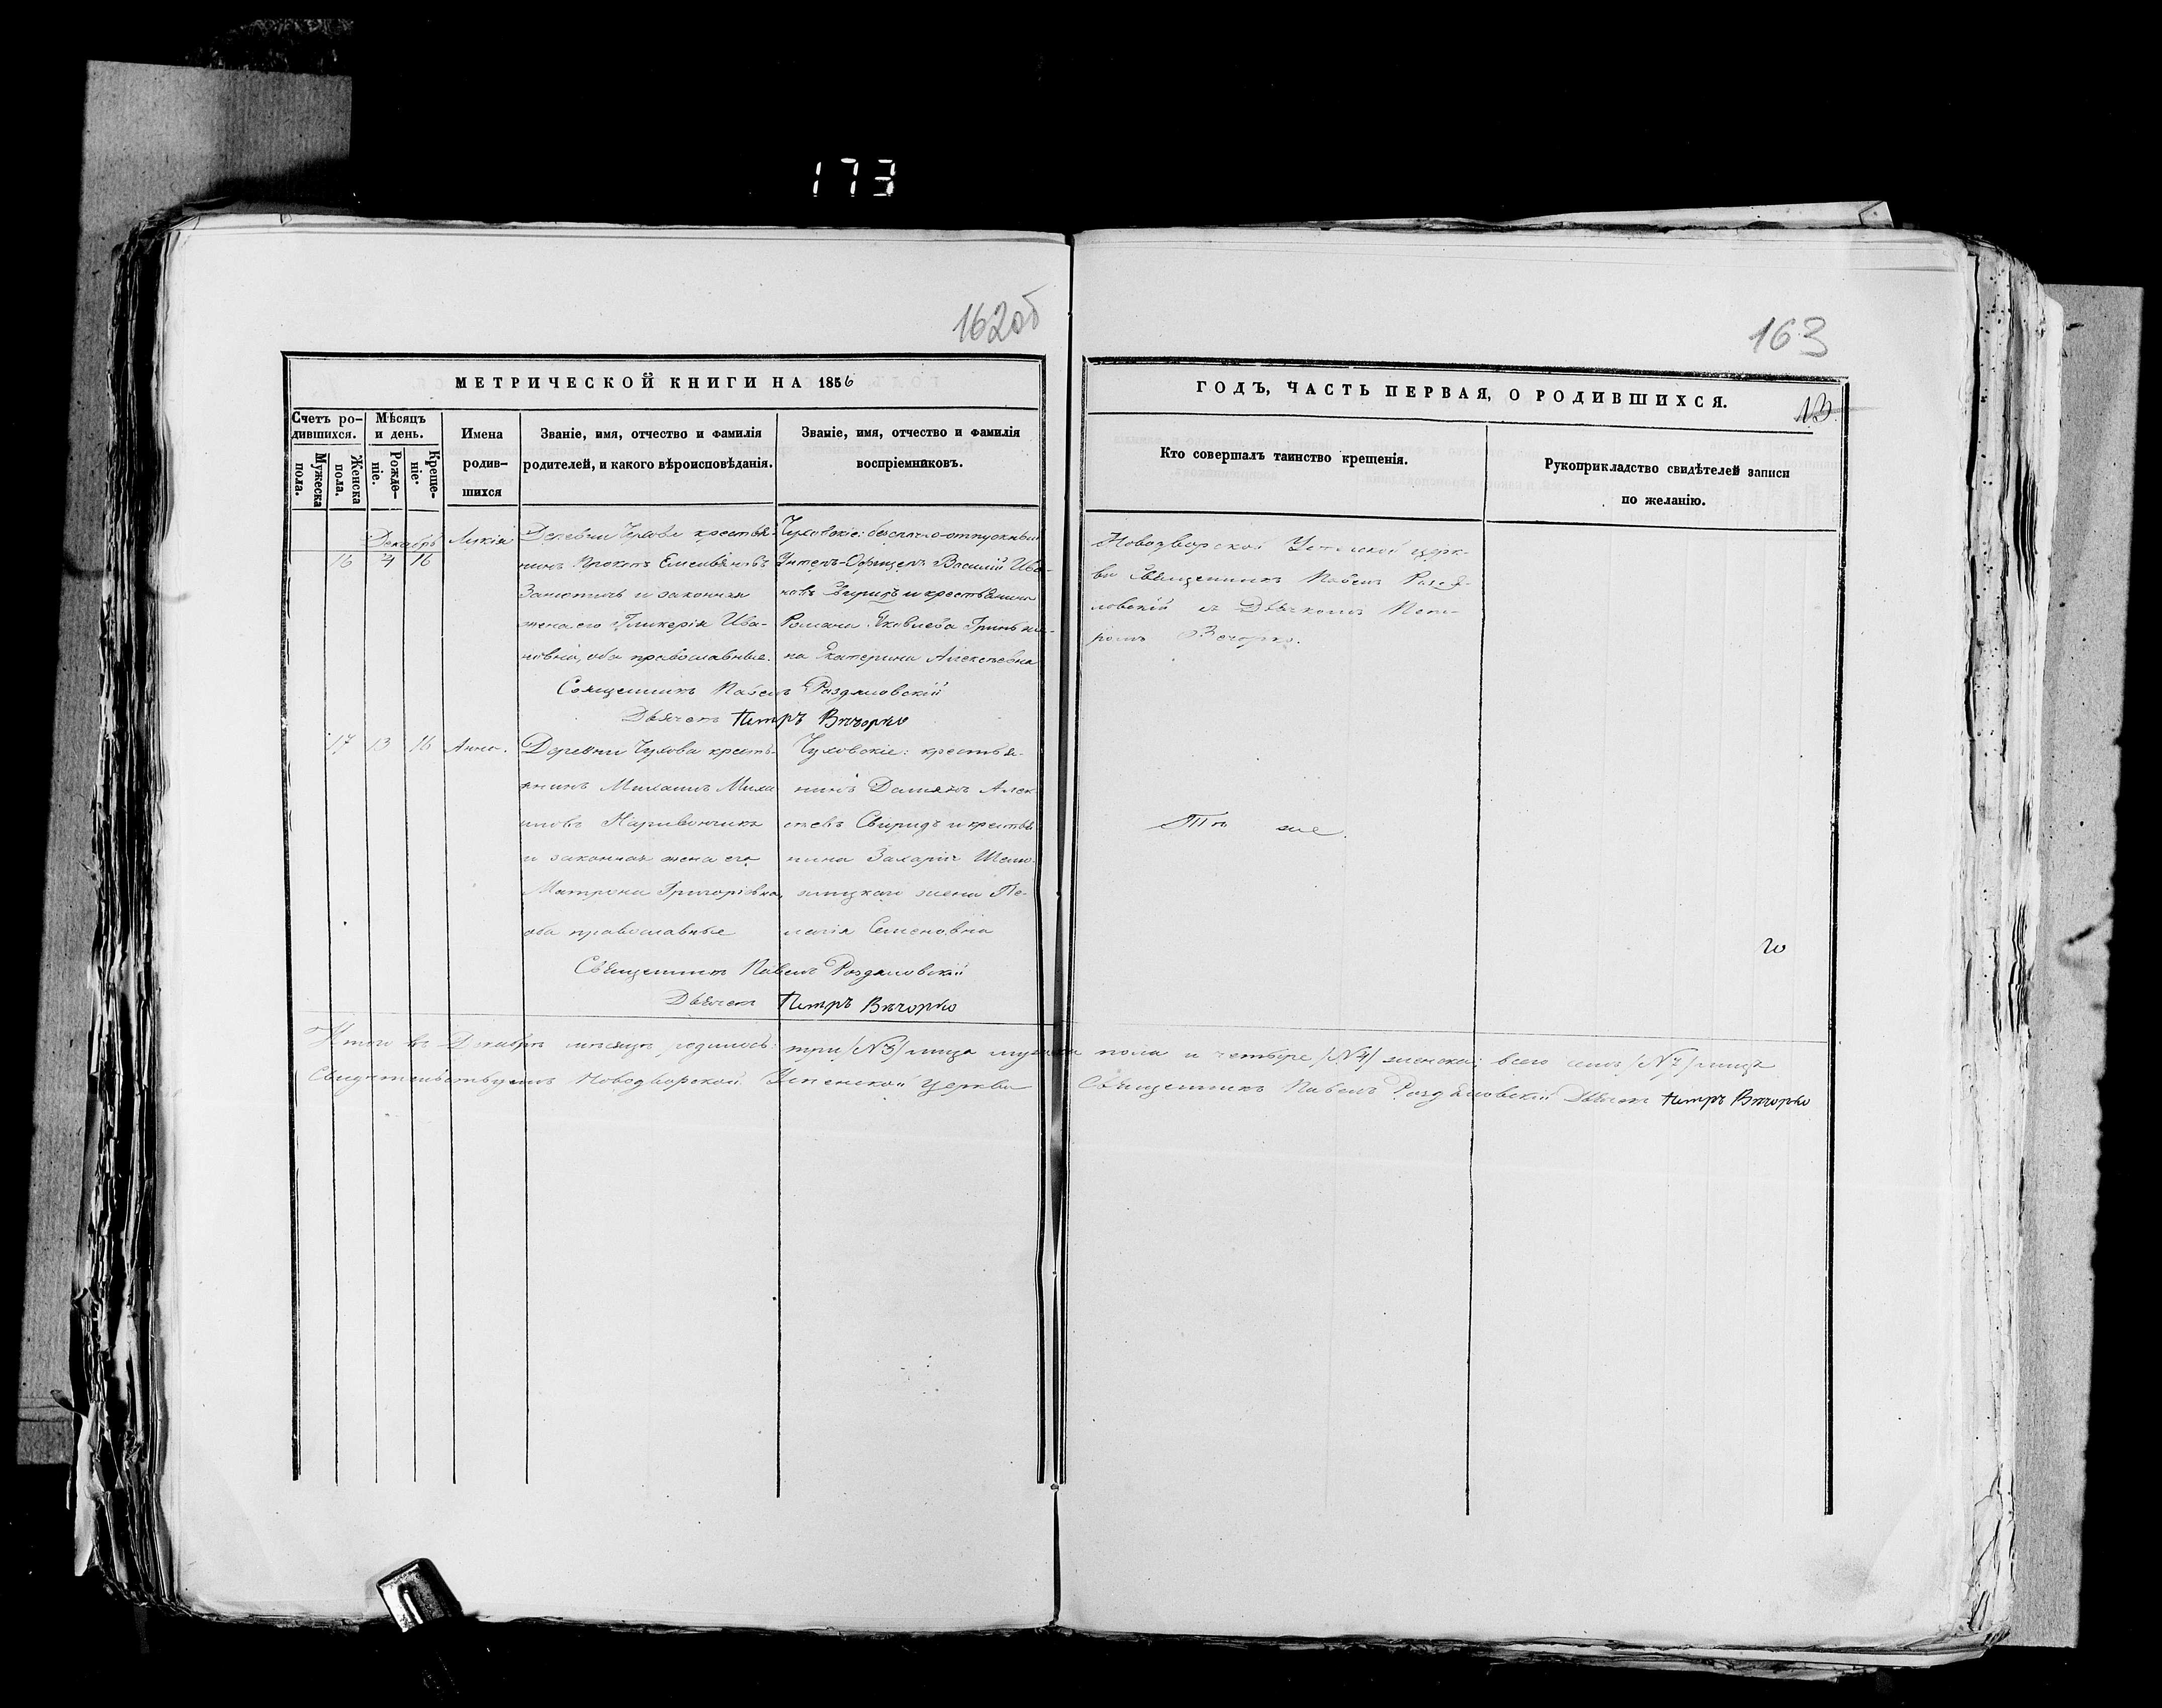 173
162об
163
МЕТРИЧЕСКОЙ КНИГИ НА 1856
ГОДЪ, ЧАСТЬ ПЕРВАЯ, О РОДИВШИХСЯ.
13
Счетъ родившихся.
Мужеска пола.
Женска пола.
Мѣсяцъ и день.
Рожденіе.
Крещеніе.
Имена родившихся
Званіе, имя, отчество и фамилія
родителей, и какого вѣроисповѣданія.
Званіе, имя, отчество и фамилія
воспріемниковъ.
Кто совершалъ таинство крещенія.
Рукоприкладство свидѣтелей записи
по желанію.
Декабрь
16 7 16
Лукія
Деревни Чухова крестья-
нинъ Прокопъ Емельяновъ
и законная
жена его Гликерія Ива-
новна, оба православные.
Чуховскіе: безсрочно-отпускный
Унтеръ-Офицеръ Василій Ива-
новъ Свиридъ и крестьянина
Романа Яковлева
Екатерина Алексѣевна
Священникъ Павелъ Роздяловскій
Дьячекъ Петръ Вечорко
Новодворской Успенской церк-
ви Священникъ Павелъ Роздя-
ловскій съ Дьячкомъ Пет-
ромъ Вечорко.
17 13 16
Анна.
Деревни Чухова кресть-
янинъ Михаилъ Миха
иловъ
и законная жена его
Матрона Григорьевна,
оба православные
Чуховскіе: крестья-
нинъ Даміянъ Алек
сѣевъ Свиридъ и крестья
нина Захарія
жена Пе-
лагія Семеновна
Тѣ же.
Священникъ Павелъ Роздяловскій
Дьячекъ Петръ Вечорко
Итого въ Декабрѣ мѣсяцѣ родилось: три /№3/ лица мужска пола и четыре /№4/ женска; всего семь /№7/ лицъ
Свидѣтельствуемъ Новодворской Успенской Церкви Священникъ Павелъ Роздяловскій Дьячекъ Петръ Вечорко